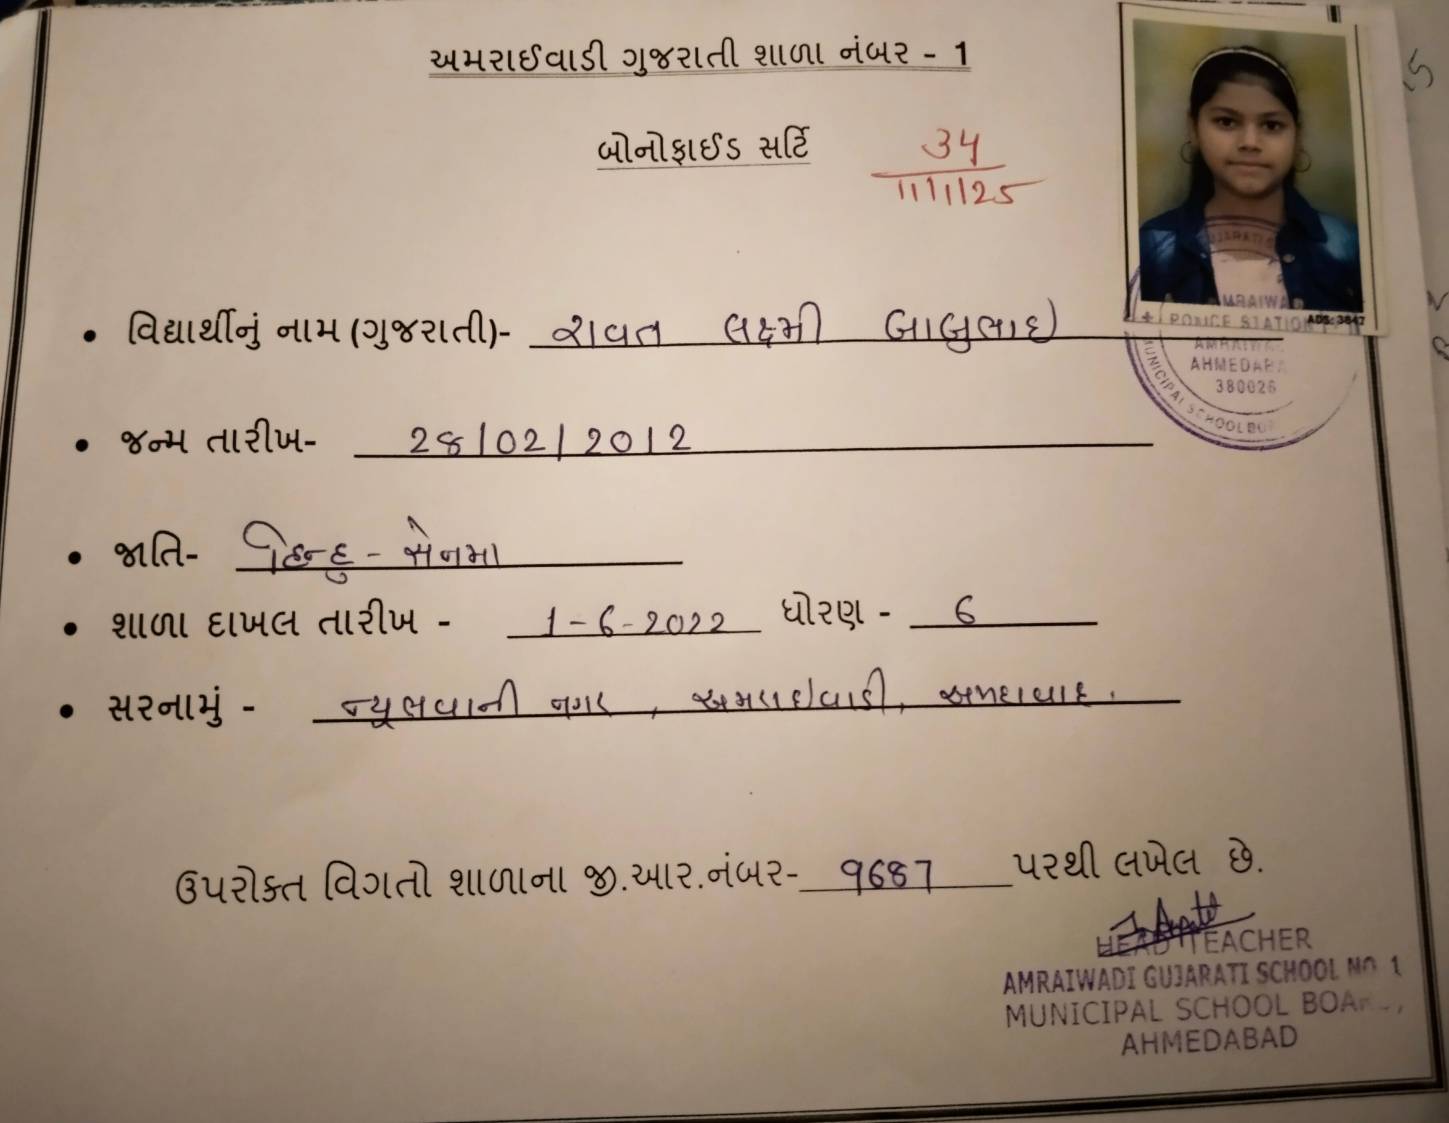 અમરાઈવાડી ગુજરાતી શાળા નંબર - 1
બોનોફાઈડ સર્ટિ
34
11/1/25
• વિદ્યાર્થીનું નામ (ગુજરાતી)- રાવત લક્ષ્મી બાબુભાઈ
MRAIWA
POLICE STATION ADS: 3647
AMRAIWA
AHMEDABA
380026
MUNICIPAL SCHOOL BO
• જન્મ તારીખ- 28/02/2012
• જાતિ- હિન્દુ - સેનમા
• શાળા દાખલ તારીખ - 1-6-2022 ધોરણ - 6
• સરનામું - ન્યુ ભવાની નગર, અમરાઈવાડી, અમદાવાદ.
ઉપરોક્ત વિગતો શાળાના જી.આર.નંબર- 9687 પરથી લખેલ છે.
HEAD TEACHER
AMRAIWADI GUJARATI SCHOOL NO 1
MUNICIPAL SCHOOL BOA
AHMEDABAD